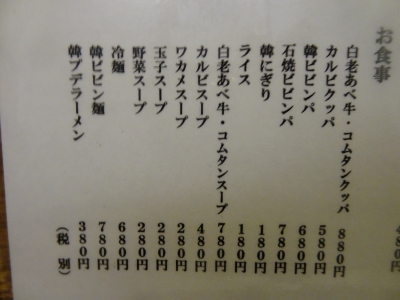 お食事
白老あべ牛・コムタンクッパ 880円
カルビクッパ 580円
韓ビビンパ 680円
石焼ビビンパ 780円
韓にぎり 180円
ライス 180円
白老あべ牛・コムタンスープ 780円
カルビスープ 480円
ワカメスープ 280円
玉子スープ 280円
野菜スープ 280円
冷麺 680円
韓ビビン麺 780円
韓プデラーメン 380円
（税別）